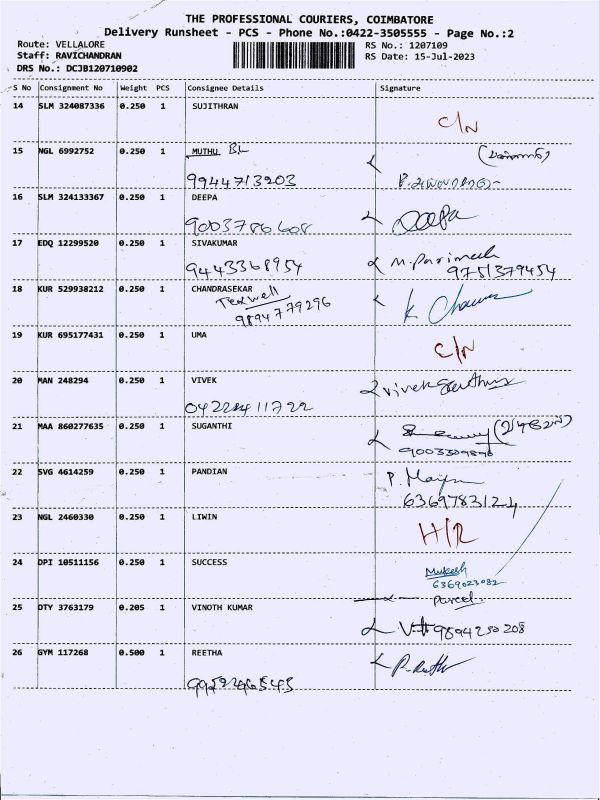 THE PROFESSIONAL COURIERS, COIMBATORE
Delivery Runsheet - PCS - Phone No.:0422-3505555 - Page No.:2
Route: VELLALORE RS No.: 1207109
Staff: RAVICHANDRAN RS Date: 15-Jul-2023
DRS No.: DCJB120710902
S No Consignment No Weight PCS Consignee Details Signature
14 SLM 324087336 0.250 1 SUJITHRAN
C/N
15 NGL 6992752 0.250 1 MUTHU BL
9944713203
16 SLM 324133367 0.250 1 DEEPA
9003786608 Deepa
17 EDQ 12299520 0.250 1 SIVAKUMAR
9443368954 M.Parimala
9751379454
18 KUR 529938212 0.250 1 CHANDRASEKAR
Texwell
9894779296
19 KUR 695177431 0.250 1 UMA
C/N
20 MAN 248294 0.250 1 VIVEK
21 MAA 860277635 0.250 1 SUGANTHI
22 SVG 4614259 0.250 1 PANDIAN
6369783124
23 NGL 2460330 0.250 1 LIWIN
H/R
24 DPI 10511156 0.250 1 SUCCESS
Mukesh
6369023082
Parcel.
25 OTY 3763179 0.205 1 VINOTH KUMAR
9894250208
26 GYM 117268 0.500 1 REETHA